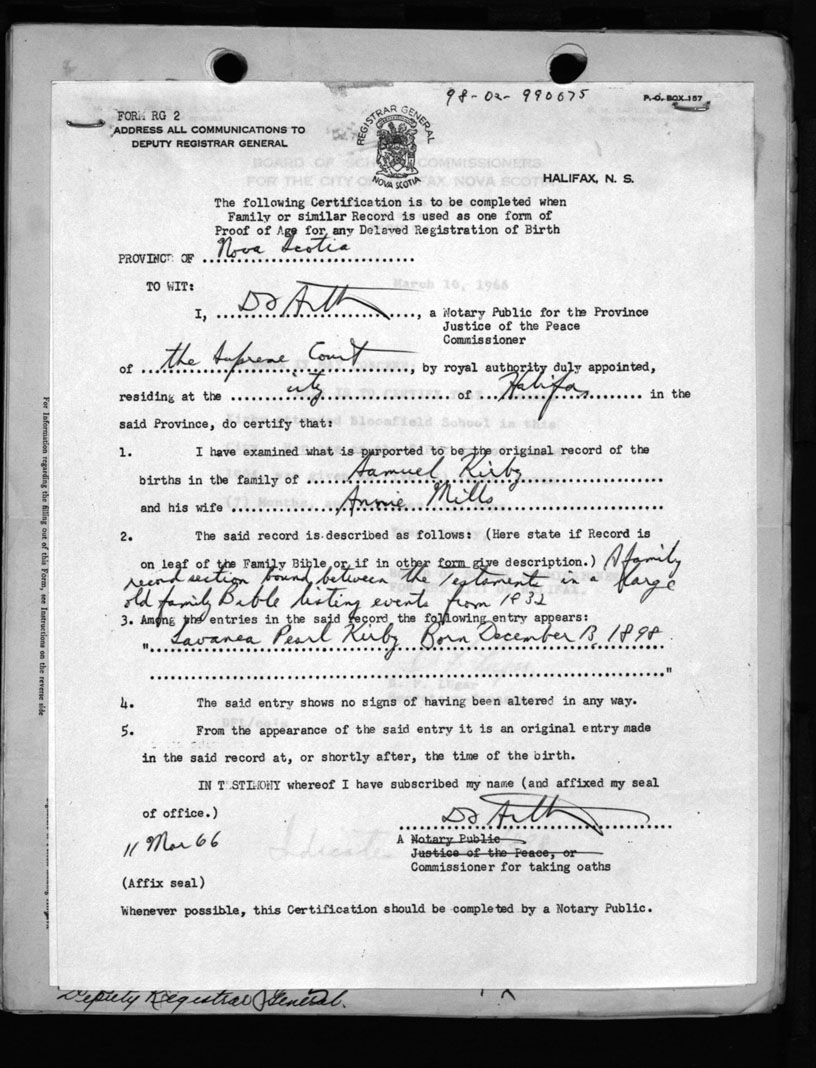 98-02-990675
P. O. BOX 157
FORM RG 2
ADDRESS ALL COMMUNICATIONS TO
DEPUTY REGISTRAR GENERAL
REGISTRAR GENERAL
NOVA SCOTIA
HALIFAX, N. S.
The following Certification is to be completed when
Family or similar Record is used as one form of
Proof of Age for any Delayed Registration of Birth
PROVINCE OF Nova Scotia
TO WIT:
I, , a Notary Public for the Province
Justice of the Peace
Commissioner
of the Supreme Court, by royal authority duly appointed,
residing at the city of Halifax in the
said Province, do certify that:
1. I have examined what is purported to be the original record of the
births in the family of Samuel Kirby
and his wife Annie Mills
2. The said record is described as follows: (Here state if Record is
on leaf of the Family Bible or if in other form give description.) A family
record section bound between the Testaments in a large
old family Bible listing events from 1832
3. Among the entries in the said record the following entry appears:
" Lavanea Pearl Kirby Born December 13, 1898
"
4. The said entry shows no signs of having been altered in any way.
5. From the appearance of the said entry it is an original entry made
in the said record at, or shortly after, the time of the birth.
IN TESTIMONY whereof I have subscribed my name (and affixed my seal
of office.)
11 Mar 66
A Notary Public
Justice of the Peace, or
Commissioner for taking oaths
(Affix seal)
Whenever possible, this Certification should be completed by a Notary Public.
For Information regarding the filling out of this Form, see Instructions on the reverse side
Deputy Registrar General.